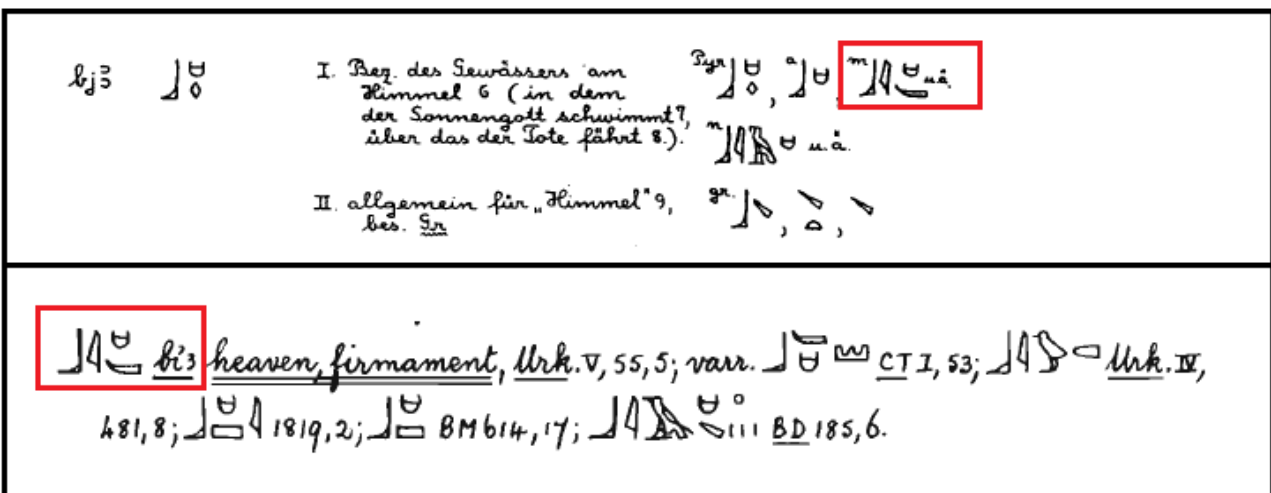 bjꜣ I. Bez. des Gewässers am
Himmel 6 (in dem
der Sonnengott schwimmt 7,
über das der Tote fährt 8.).
Pyr. , a , m u.ä.
n u.ä.
II. allgemein für „Himmel" 9,
bes. Gr
gr. , ,
bꞽꜣ heaven, firmament, Urk. V, 55, 5; varr. CT I, 53; Urk. IV,
481, 8; 1819, 2; BM 614, 17; BD 185, 6.